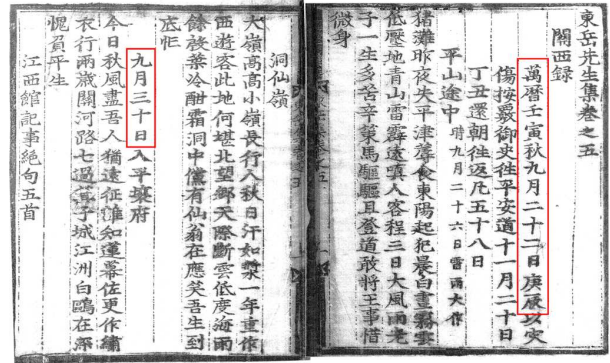 東岳先生集卷之五
關西錄
萬曆壬寅秋九月二十二日庚辰以災
傷按覈御史往平安道十一月二十日
丁丑還朝往返凡五十八日
平山途中 時九月二十六日雷雨大作
猪灘昨夜失平津蓐食東陽起犯晨白晝霧雲
低壓地青山雷霹遠嗔人客程三日大風雨老
子一生多苦辛策馬驅驅且登道敢將王事惜
微身
洞仙嶺
大嶺高高小嶺長行人秋日汗如漿一年重作
西遊客此地何堪北望鄉天際斷雲低度海雨
餘殘葉冷酣霜洞中儻有仙翁在應笑吾生到
底忙
九月三十日入平壤府
今日秋風盡吾人猶遠征雖知蓮幕佐更作繡
衣行兩歲關河路七過箕子城江洲白鷗在深
愧負平生
江西館記事絕句五首